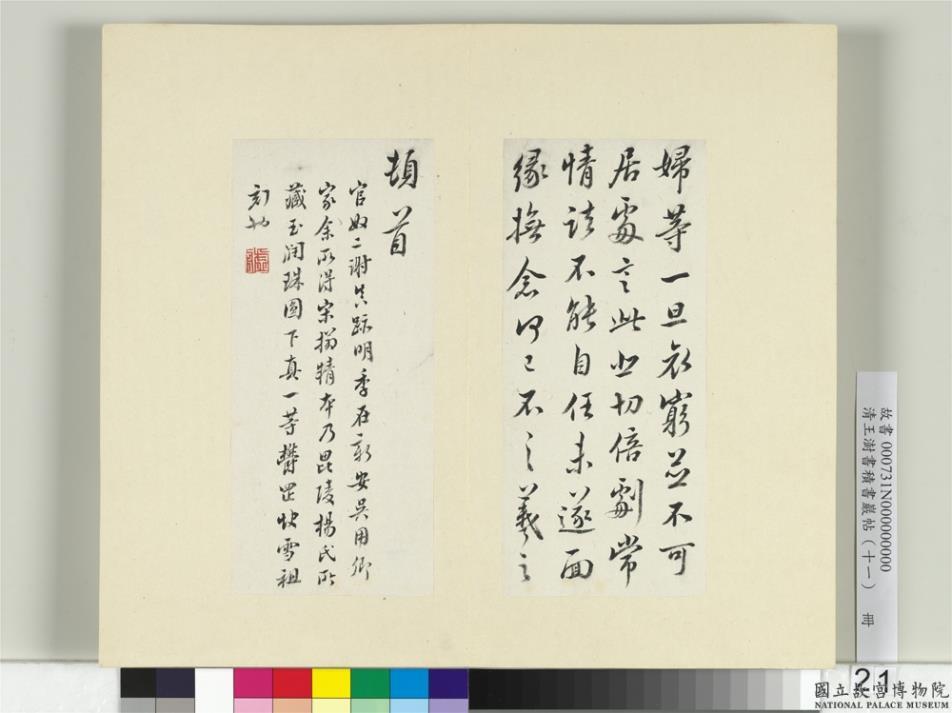 婦等一旦哀窮並不可
居處言此悲切倍劇常
情諸不能自任未遂面
緣撫念何已不一一羲之
頓首
官奴二謝真跡明季在新安吳用卿
家余所得宋搨精本乃毘陵楊氏所
藏玉潤珠圓下真一等鬱岡快雪祖
刻也
故書 000731N000000000
清王澍書積書巖帖（十一） 冊
21
國立故宮博物院
NATIONAL PALACE MUSEUM